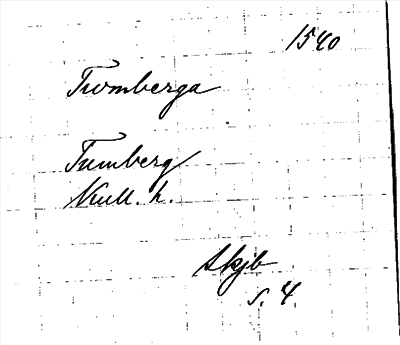 1540
Tromberga
Tumberg
Kull. h.
Skjb
s. 4.